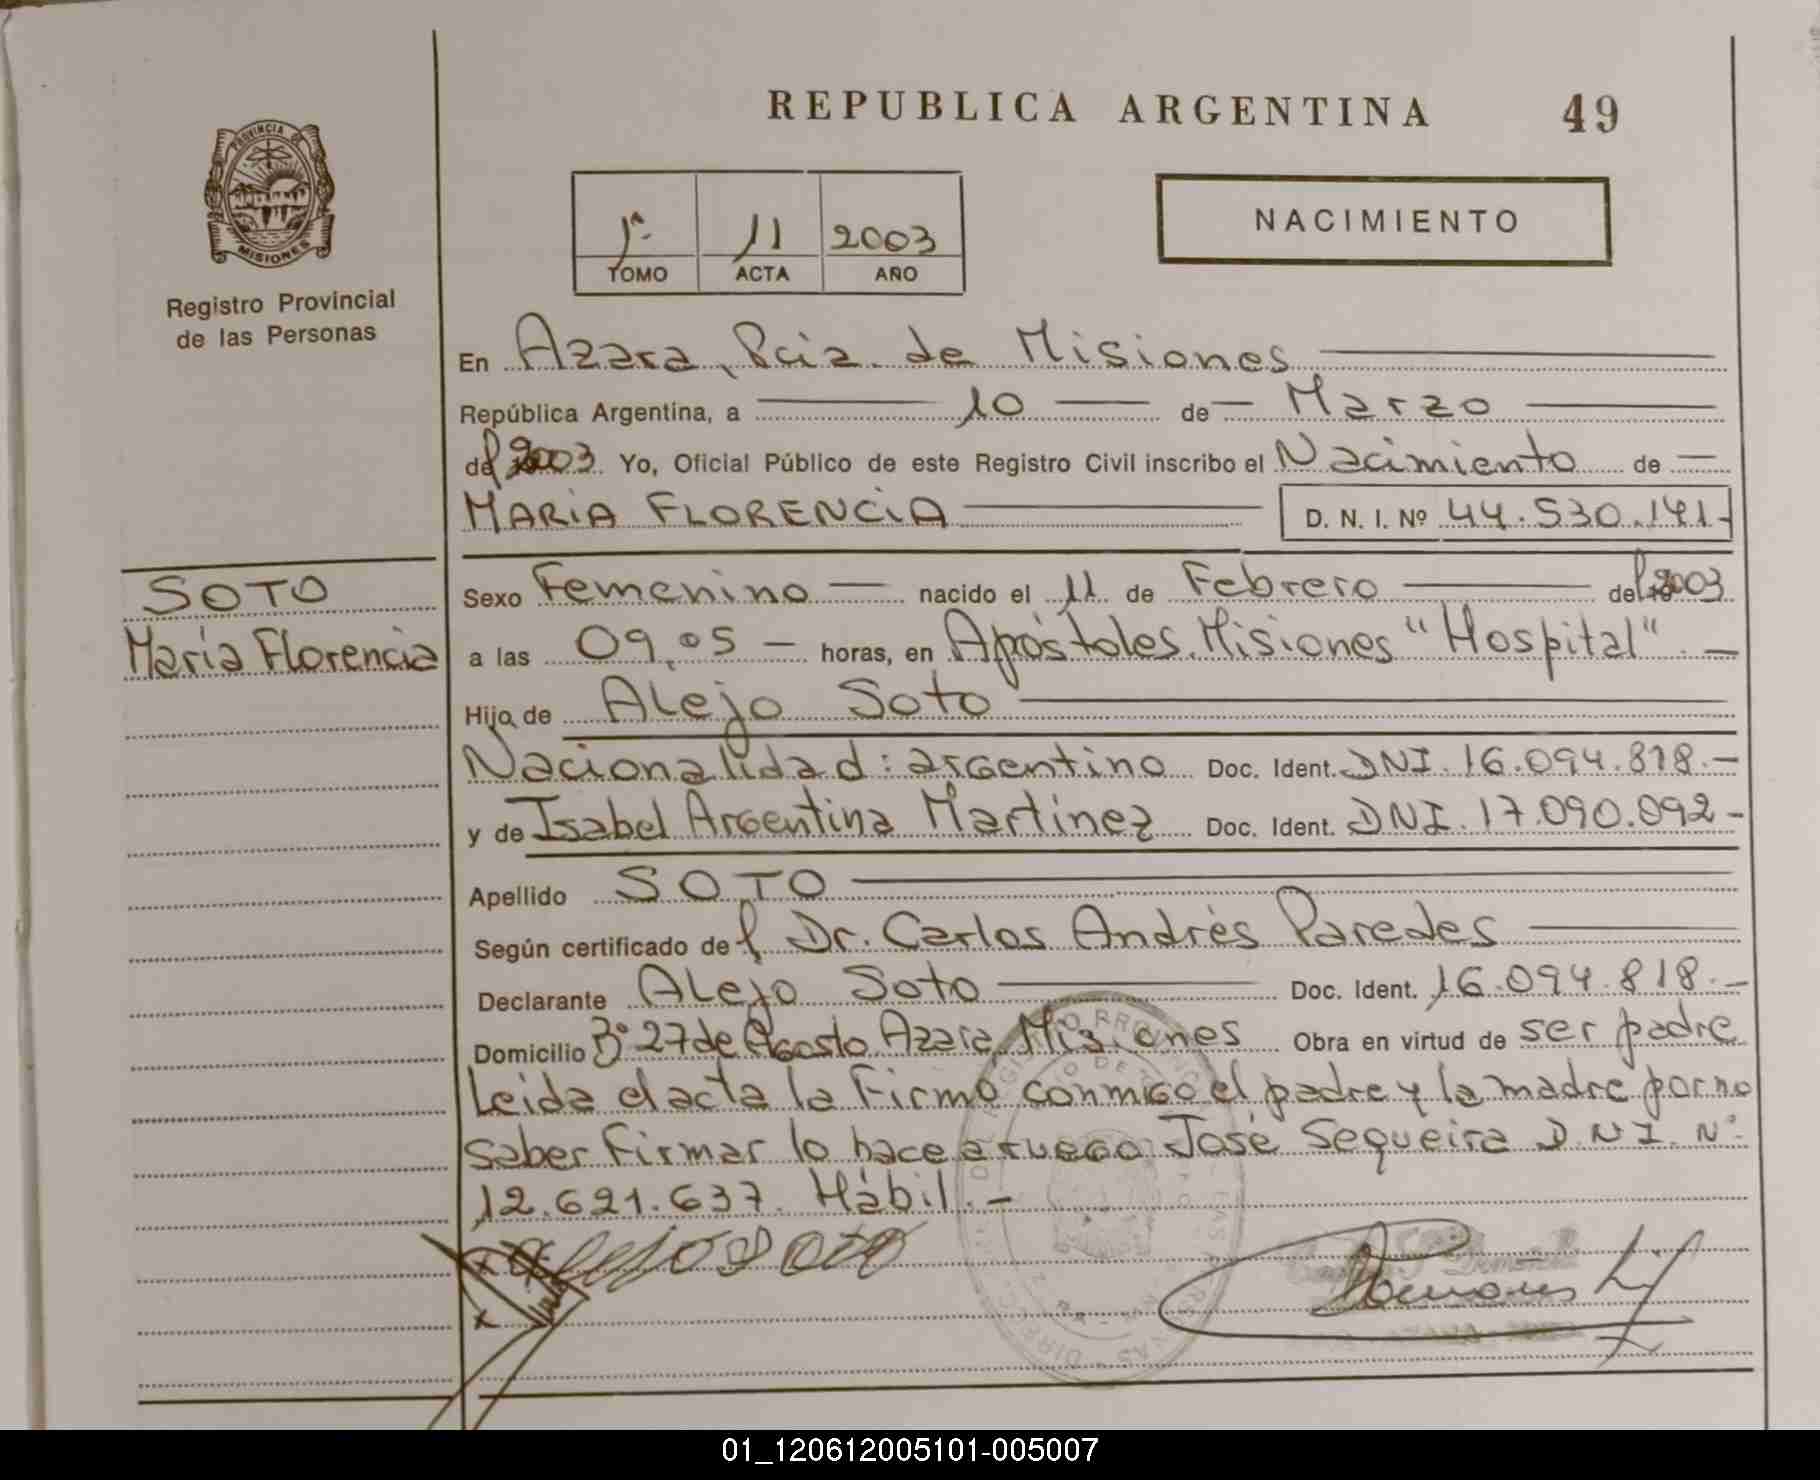 REPUBLICA ARGENTINA 49
PROVINCIA DE
MISIONES
Registro Provincial
de las Personas
1º 11 2003
TOMO ACTA AÑO
NACIMIENTO
En Azara, Pcia. de Misiones
República Argentina, a 10 de Marzo
del 2003 Yo, Oficial Público de este Registro Civil inscribo el Nacimiento de
MARIA FLORENCIA D. N. I. Nº 44.530.141-
SOTO
María Florencia
Sexo Femenino nacido el 11 de Febrero del 2003
a las 09,05 - horas, en Apóstoles. Misiones "Hospital" -
Hija de Alejo Soto
Nacionalidad: argentino Doc. Ident. DNI. 16.094.818.-
y de Isabel Argentina Martínez Doc. Ident. DNI. 17.090.092-
Apellido SOTO
Según certificado del Dr. Carlos Andrés Paredes
Declarante Alejo Soto Doc. Ident. 16.094.818.-
Domicilio Bº 27 de Agosto Azara Misiones Obra en virtud de ser padre
Leida el acta la Firmo conmigo el padre y la madre por no
saber Firmar lo hace a ruego José Sequeira D.N.I. Nº
12.621.637. Hábil.-
x Alejo Soto
x
01_120612005101-005007